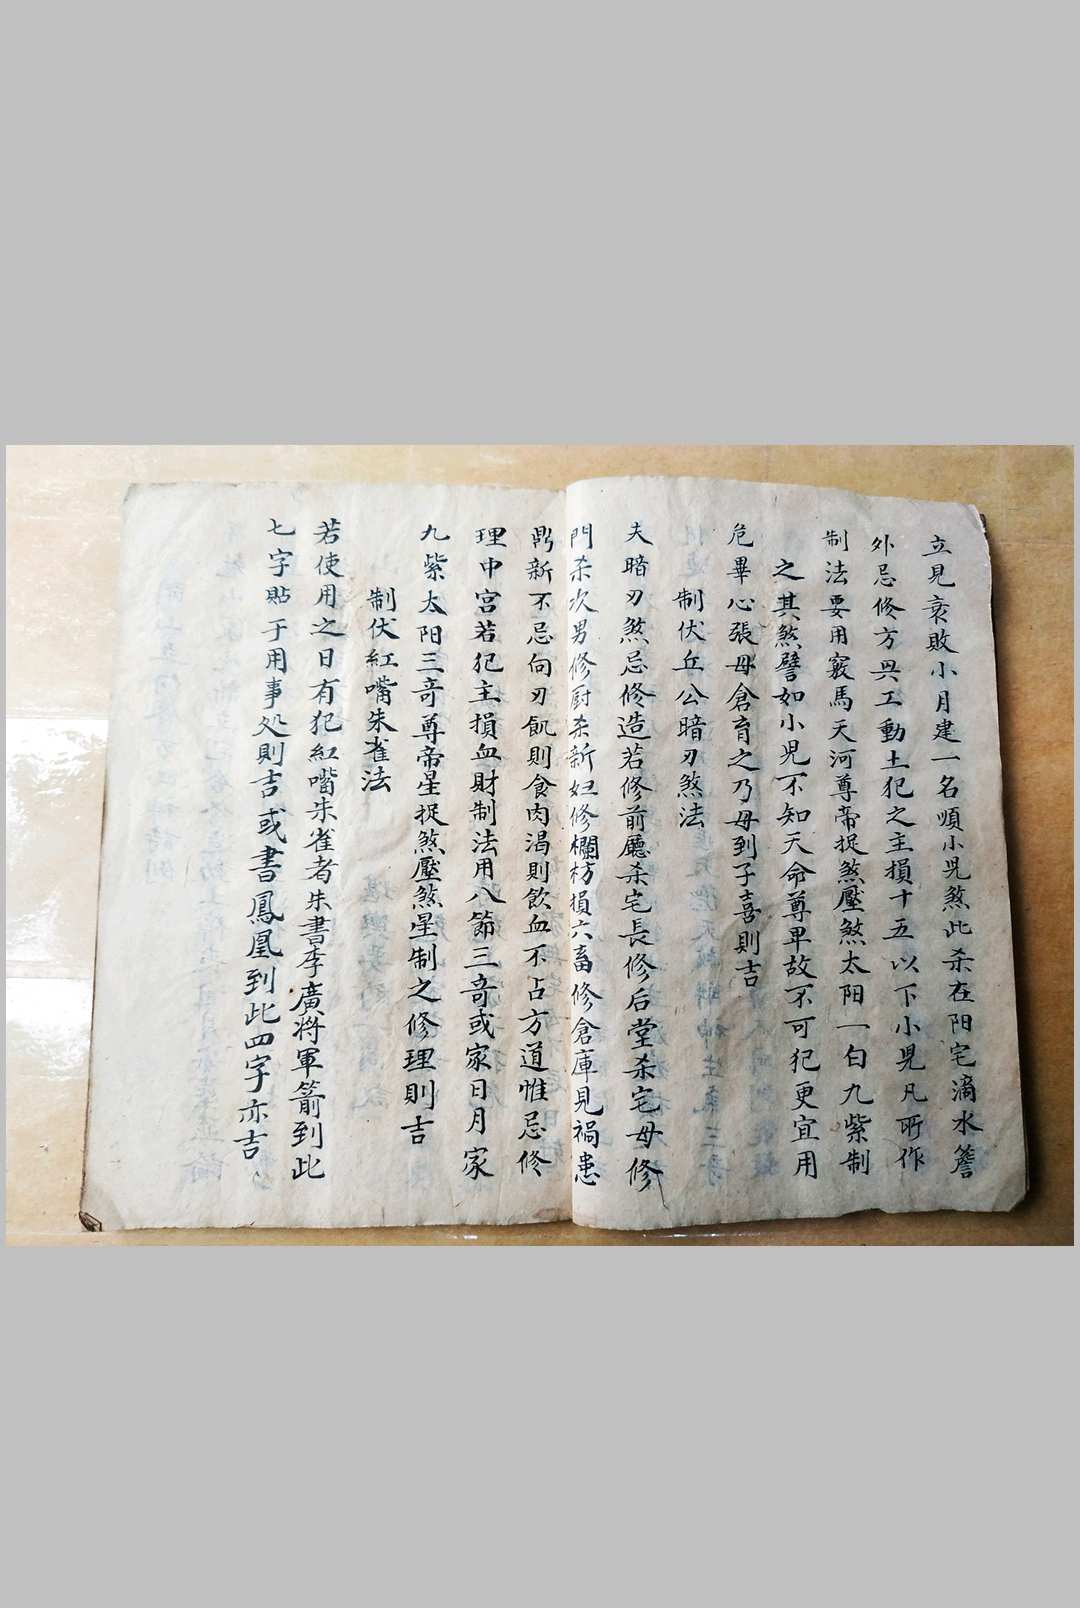 立見衰敗小月建一名順小児煞此杀在阳宅滴水簷
外忌修方㒷工動土犯之主損十五以下小児凡所作
制法要用竅馬天河尊帝捉煞壓煞太阳一白九紫制
之其煞譬如小児不知天命尊卑故不可犯更宜用
危畢心張母倉育之乃母到子喜則吉
制伏丘公暗刃煞法
夫暗刃煞忌修造若修前廳杀宅長修后堂杀宅母修
門杀次男修厨杀新妇修欄枋損六畜修倉庫見禍患
鼎新不忌向刃飢則食肉渴則飲血不占方道惟忌修
理中宮若犯主損血財制法用八節三奇或家日月家
九紫太阳三奇尊帝星捉煞壓煞星制之修理則吉
制伏紅嘴朱雀法
若使用之日有犯紅嘴朱雀者朱書李廣將軍箭到此
七字貼于用事処則吉或書鳳凰到此四字亦吉